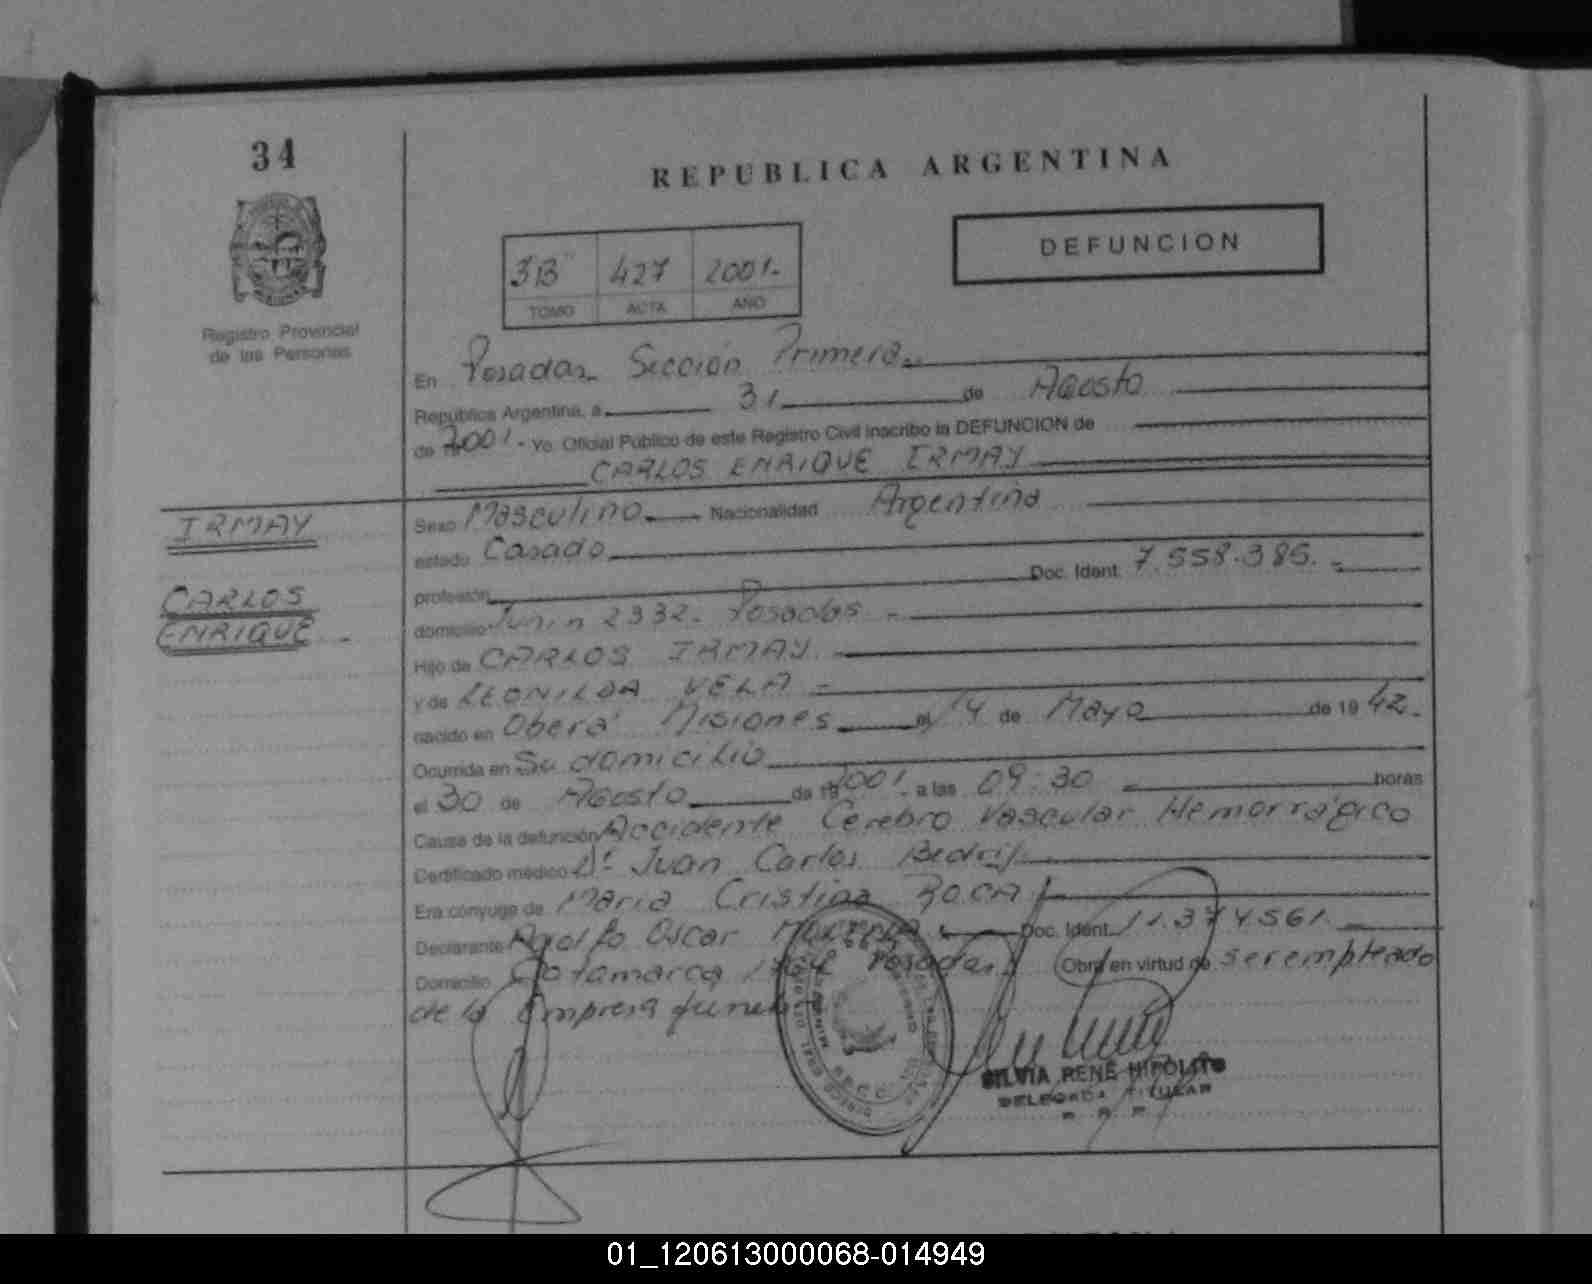 34
REPUBLICA ARGENTINA
DEFUNCION
3"B" 427 2001-
TOMO ACTA AÑO
Registro Provincial
de las Personas
En Posadas Sección Primera
República Argentina, a 31 de Agosto
de 2001 - Yo. Oficial Público de este Registro Civil inscribo la DEFUNCION de
CARLOS ENRIQUE IRMAY
IRMAY
CARLOS
ENRIQUE -
Sexo Masculino Nacionalidad Argentina
estado Casado
profesión Doc. Ident. 7.558.385.-
domicilio Junin 2332- Posadas -
Hijo de CARLOS IRMAY
y de LEONILDA VELA -
nacido en Oberá Misiones el 14 de Mayo de 19 42.
Ocurrida en Su domicilio
el 30 de Agosto de 2001 - a las 09:30 horas
Causa de la defunción Accidente Cerebro Vascular Hemorrágico
Certificado médico Dr. Juan Carlos
Era cónyuge de Maria Cristina ROCA
Declarante Adolfo Oscar Doc. Ident. 11.374.561.
Domicilio Catamarca Posadas Obra en virtud de ser empleado
de la Empresa
SILVIA RENE HIPOLITO
DELEGADA TITULAR
R. P. P.
01_120613000068-014949